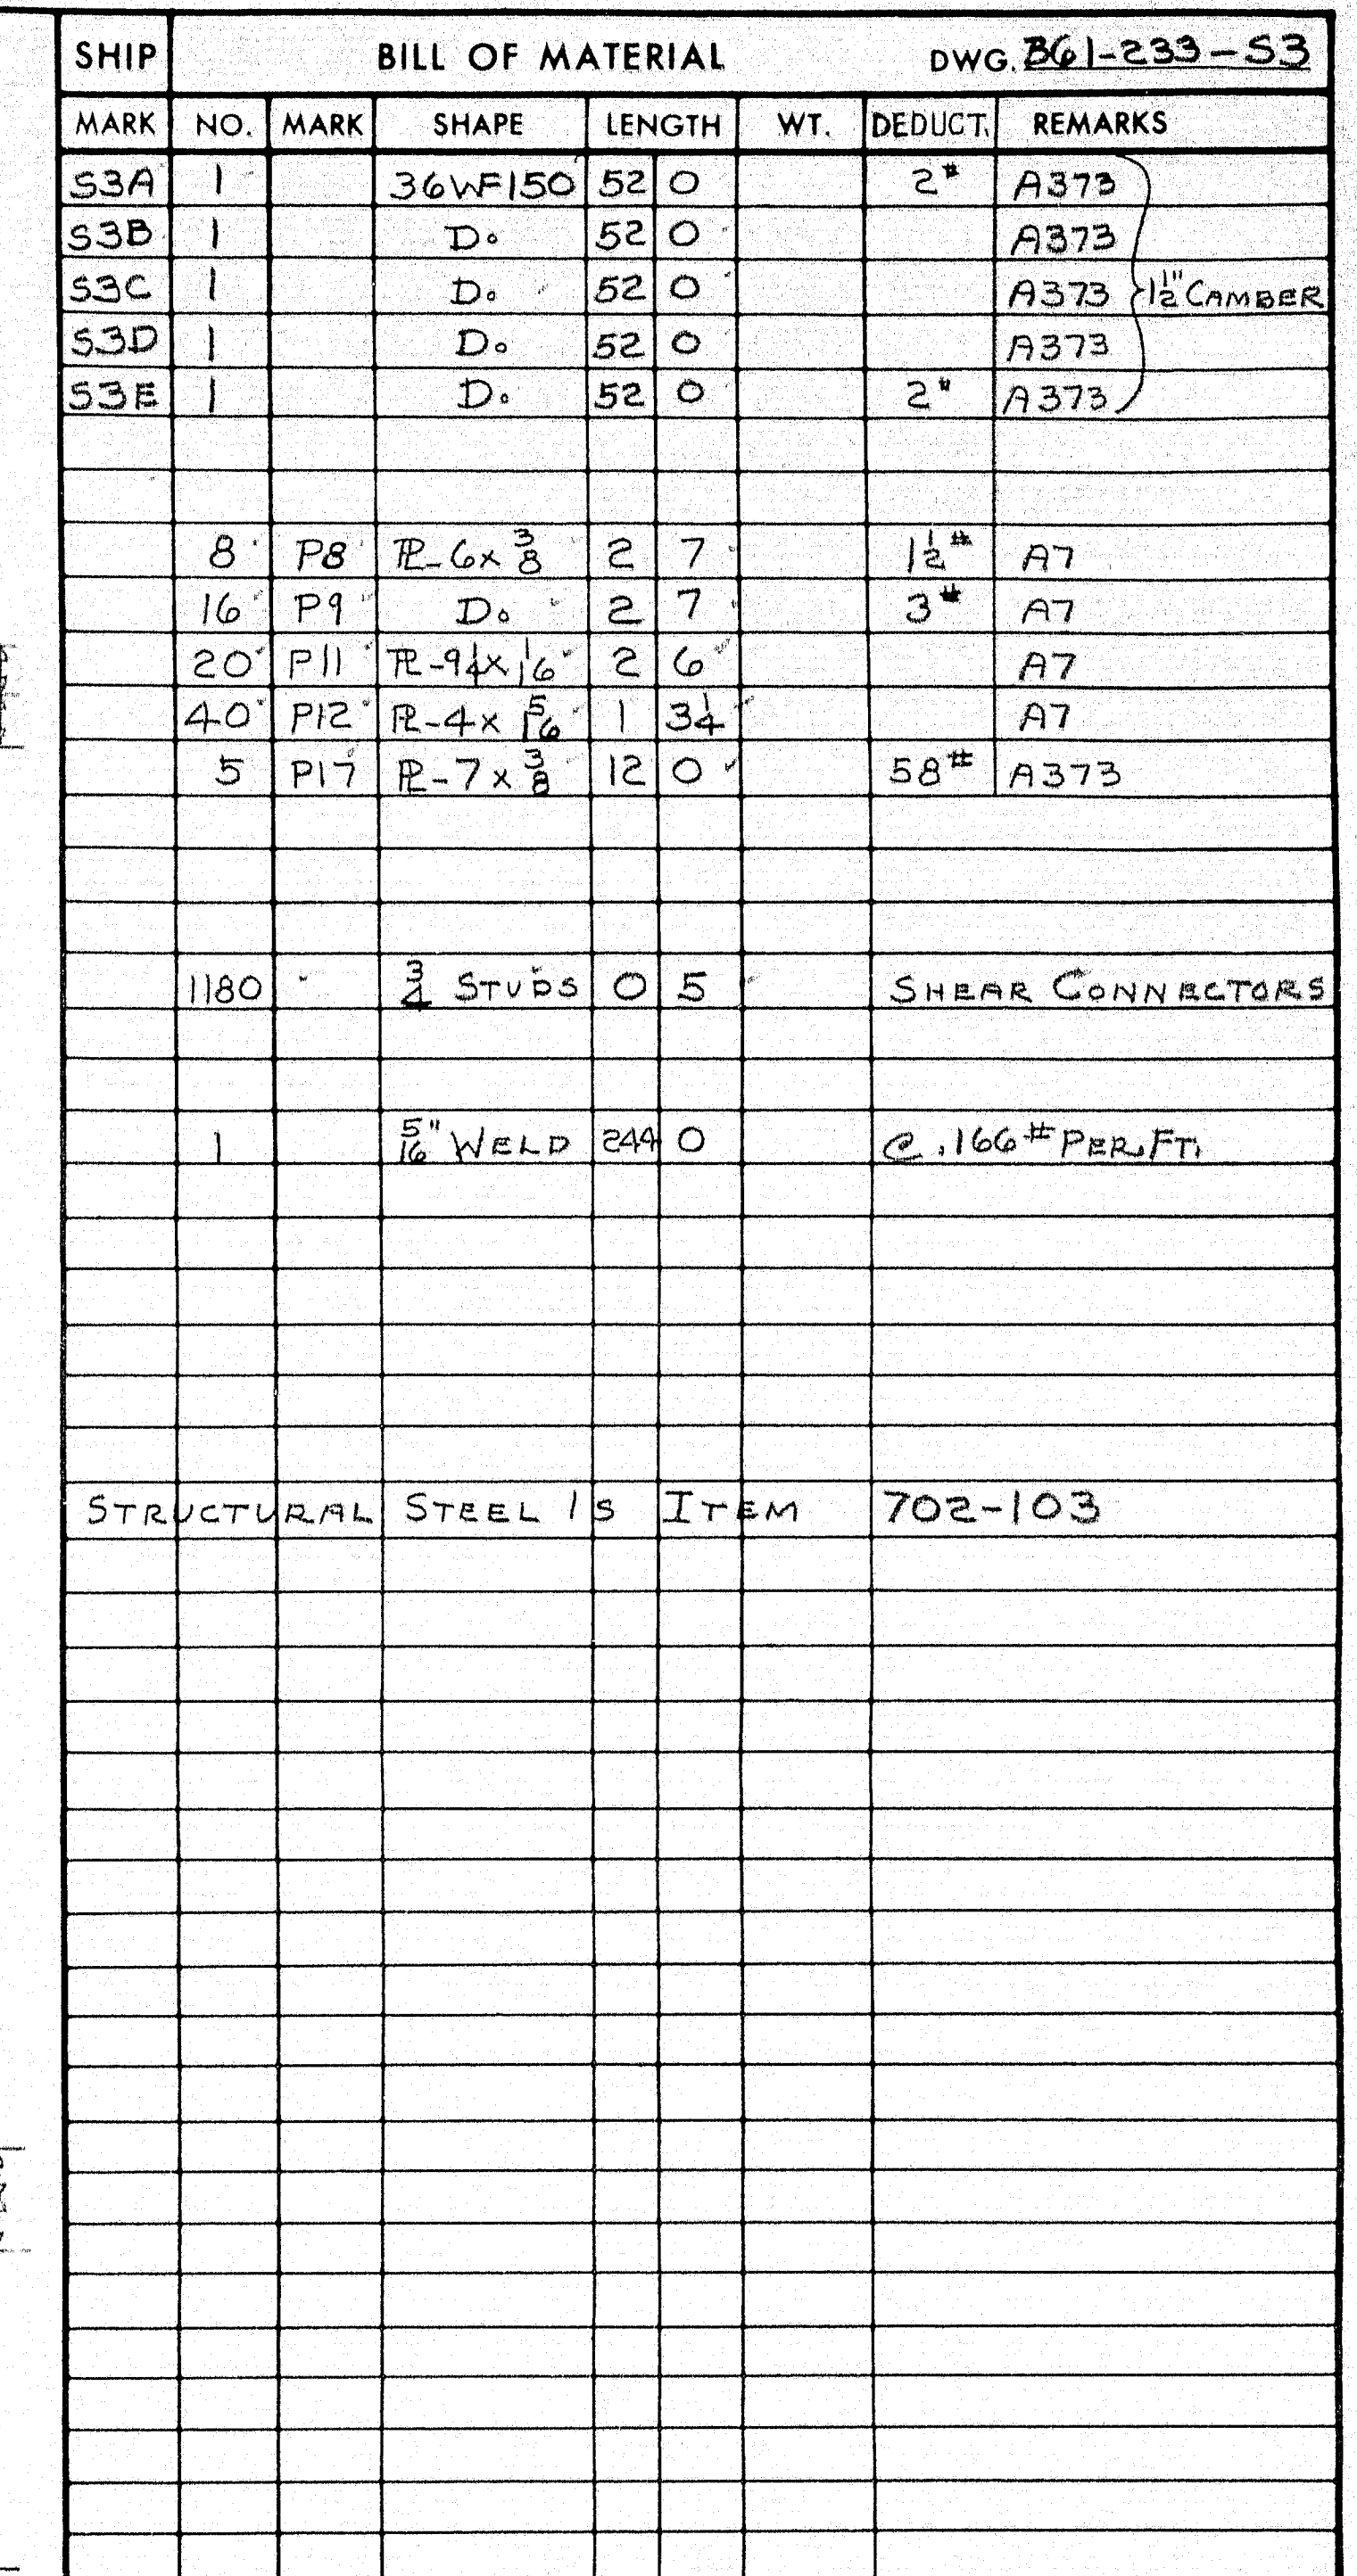 SHIP BILL OF MATERIAL DWG. B61-233-S3
MARK NO. MARK SHAPE LENGTH WT. DEDUCT. REMARKS
S3A 1 36WF150 52 0 2# A373
S3B 1 Do 52 0 A373
S3C 1 Do. 52 0 A373 1 1/2" CAMBER
S3D 1 Do 52 0 A373
S3E 1 Do. 52 0 2# A373
8 P8 PL-6x 3/8 2 7 1 1/2# A7
16 P9 Do 2 7 3# A7
20 P11 PL-9 1/4 x 1/16 2 6 A7
40 P12 PL-4 x 5/16 1 3 1/4 A7
5 P17 PL-7 x 3/8 12 0 58# A373
1180 3/4 STUDS 0 5 SHEAR CONNECTORS
1 5/16" WELD 244 0 @ .166# PER.FT.
STRUCTURAL STEEL IS ITEM 702-103